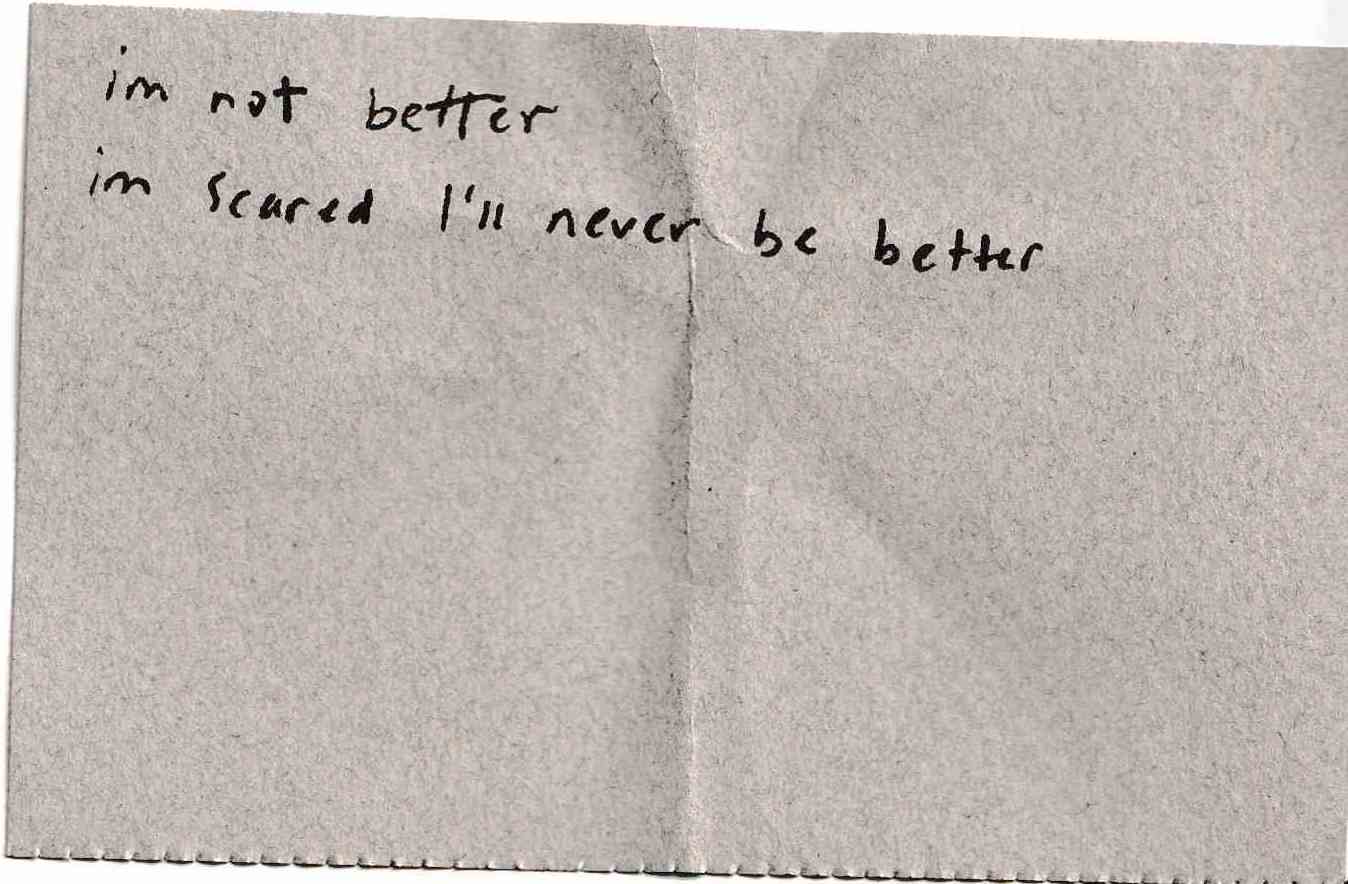 im not better
im scared I'll never be better